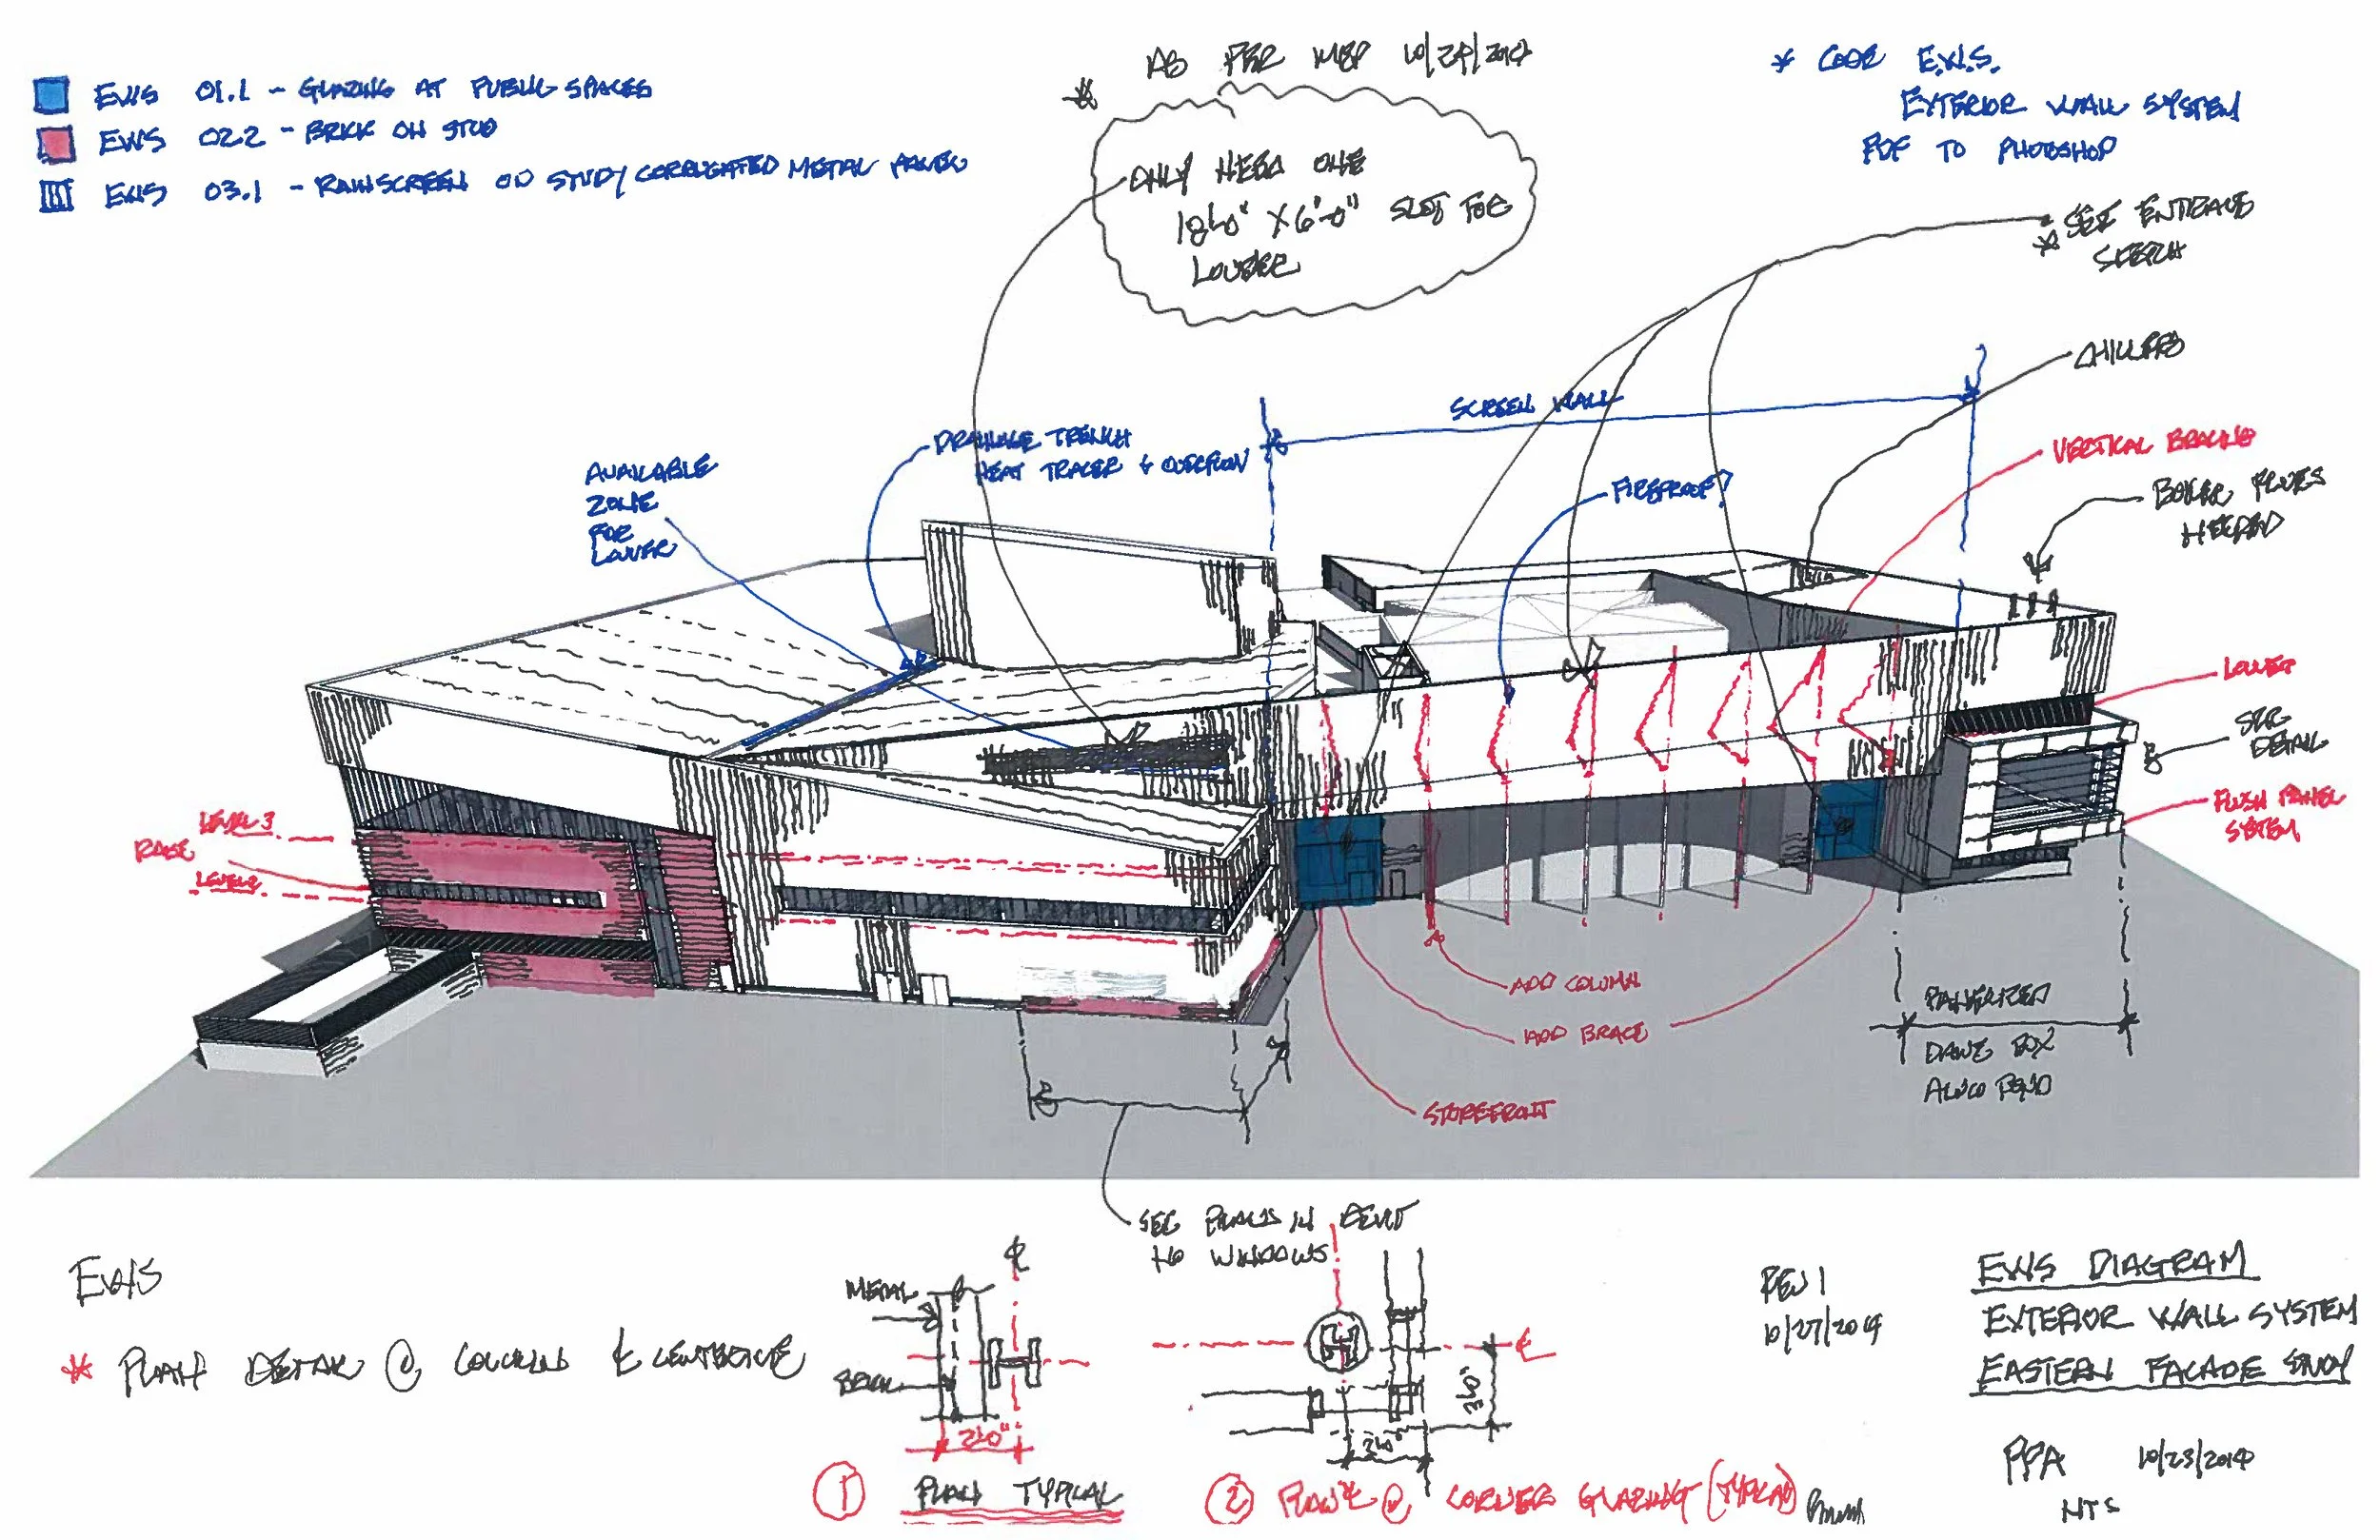 AS PER MEP 10/29/2014
* CODE E.W.S.
EXTERIOR WALL SYSTEM
PDF TO PHOTOSHOP
EWS 01.1 - GLAZING AT PUBLIC SPACES
EWS 02.2 - BRICK ON STUD
EWS 03.1 - RAINSCREEN ON STUD / CORRUGATED METAL PANEL
ONLY NEED ONE
18'-0" X 6'-0" SLOT FOR
LOUVER
* SEE ENTRANCE
SKETCH
CHILLERS
SCREEN WALL
DRAINAGE TRENCH
HEAT TRACER & OVERFLOW
AVAILABLE
ZONE
FOR
LOUVER
FIREPROOF?
VERTICAL BRACING
BOILER FLUES
NEEDED
LOUVER
SEE
DETAIL
FLUSH PANEL
SYSTEM
LEVEL 3
LEVEL 2
ADD COLUMN
ADD BRACE
STOREFRONT
PANELIZED
DANCE BOX
SEE PLANS IN REVIT
NO WINDOWS
EWS
* PLAN DETAIL @ COLUMN CENTERLINE
METAL
BRICK
2'-0"
1 PLAN TYPICAL
3'-0"
2'-0"
2 PLAN @ CORNER GLAZING (TYPICAL)
REV 1
10/27/2014
EWS DIAGRAM
EXTERIOR WALL SYSTEM
EASTERN FACADE STUDY
PPA 10/23/2014
NTS